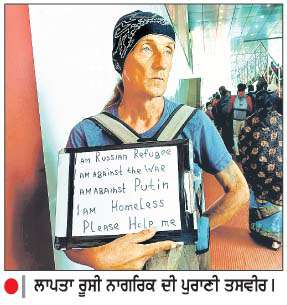 I AM RUSSIAN REFUGEE
I AM AGAINST THE WAR
AM AGAINST PUTIN
I AM HOMELESS
PLEASE HELP ME
ਲਾਪਤਾ ਰੂਸੀ ਨਾਗਰਿਕ ਦੀ ਪੁਰਾਣੀ ਤਸਵੀਰ।